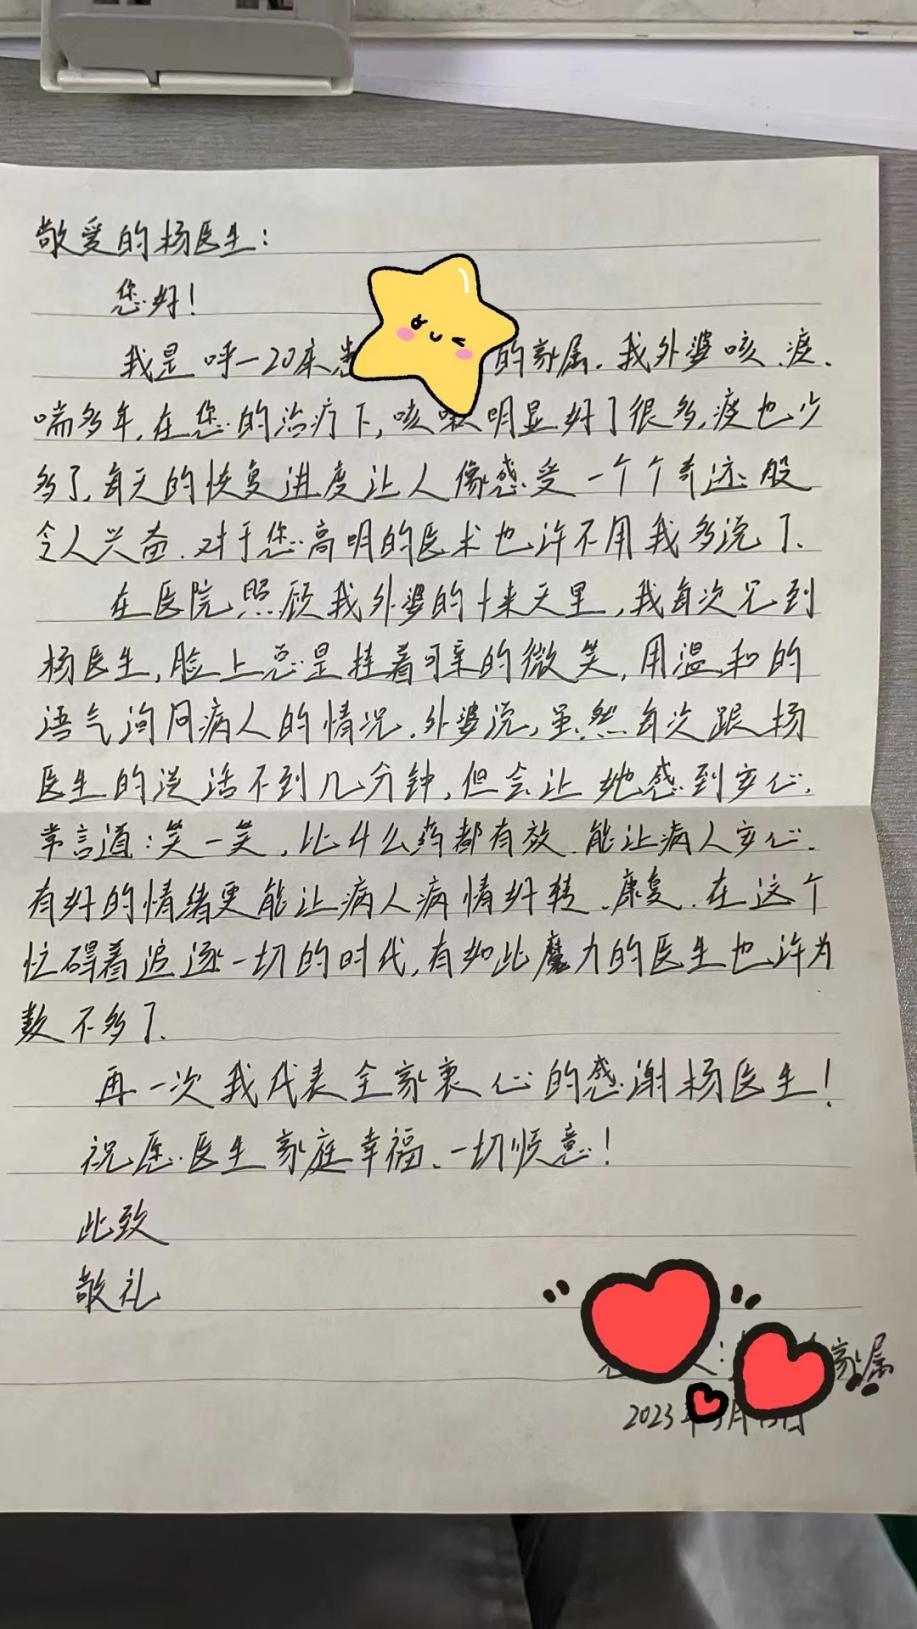 敬爱的杨医生：
您好！
我是呼一20床患 的家属.我外婆咳.痰.
喘多年,在您的治疗下,咳嗽明显好了很多,痰也少
多了,每天的恢复进度让人像感受一个个奇迹般
令人兴奋.对于您高明的医术也许不用我多说了.
在医院照顾我外婆的十来天里,我每次见到
杨医生,脸上总是挂着可亲的微笑,用温和的
语气询问病人的情况.外婆说,虽然每次跟杨
医生的说话不到几分钟,但会让她感到安心.
常言道:笑一笑,比什么药都有效.能让病人安心.
有好的情绪更能让病人病情好转.康复.在这个
忙碍着追逐一切的时代,有如此魔力的医生也许为
数不多了.
再一次我代表全家衷心的感谢杨医生!
祝愿医生家庭幸福、一切顺意!
此致
敬礼
人: 家属
2023年 月 日